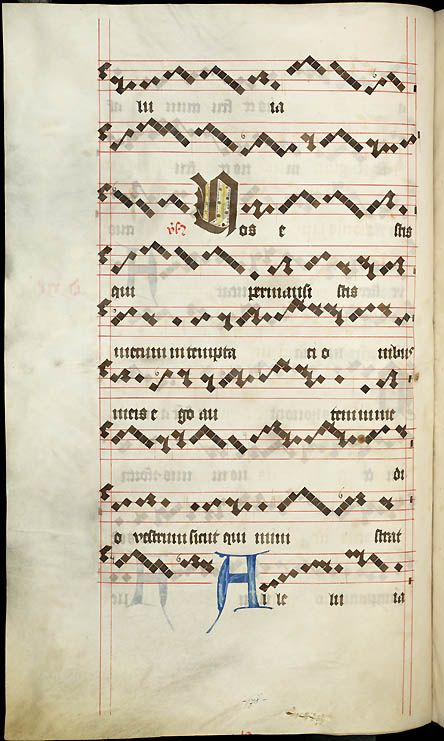 lu ia
vs Vos e stis
qui permansi stis
mecum in tempta ti o nibus
meis e go au tem inme
di
o vestrum sicut qui mini strat
A l le lu ia